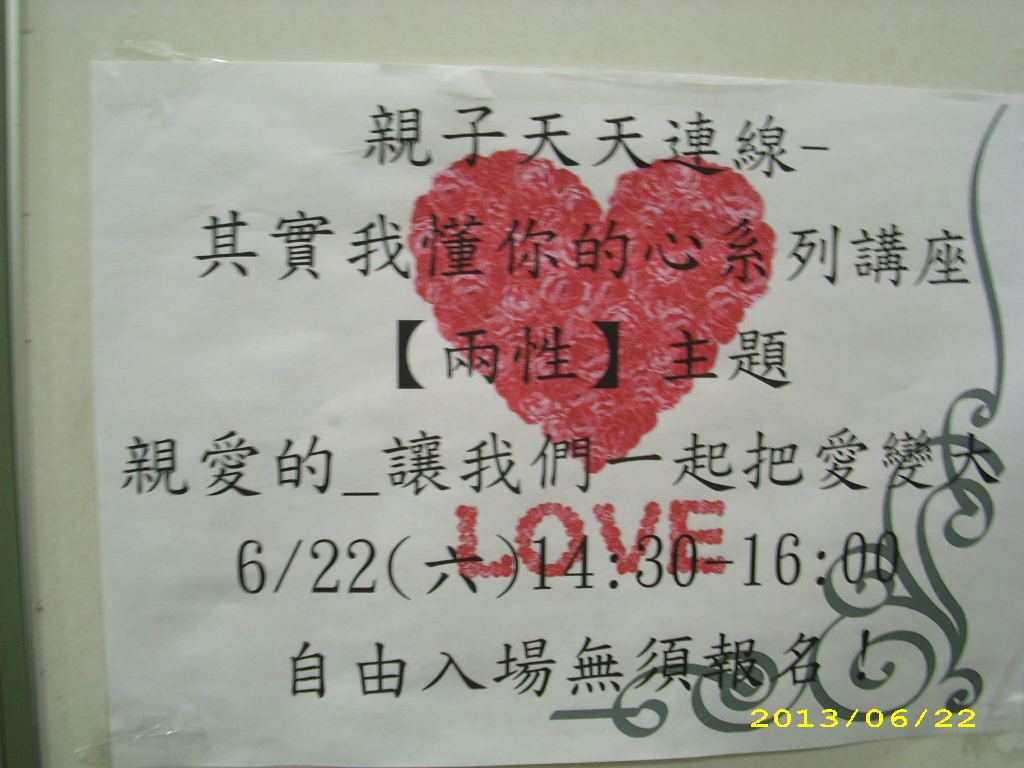 親子天天連線-
其實我懂你的心系列講座
【兩性】主題
親愛的_讓我們一起把愛變大
LOVE
6/22(六)14:30-16:00
自由入場無須報名！
2013/06/22